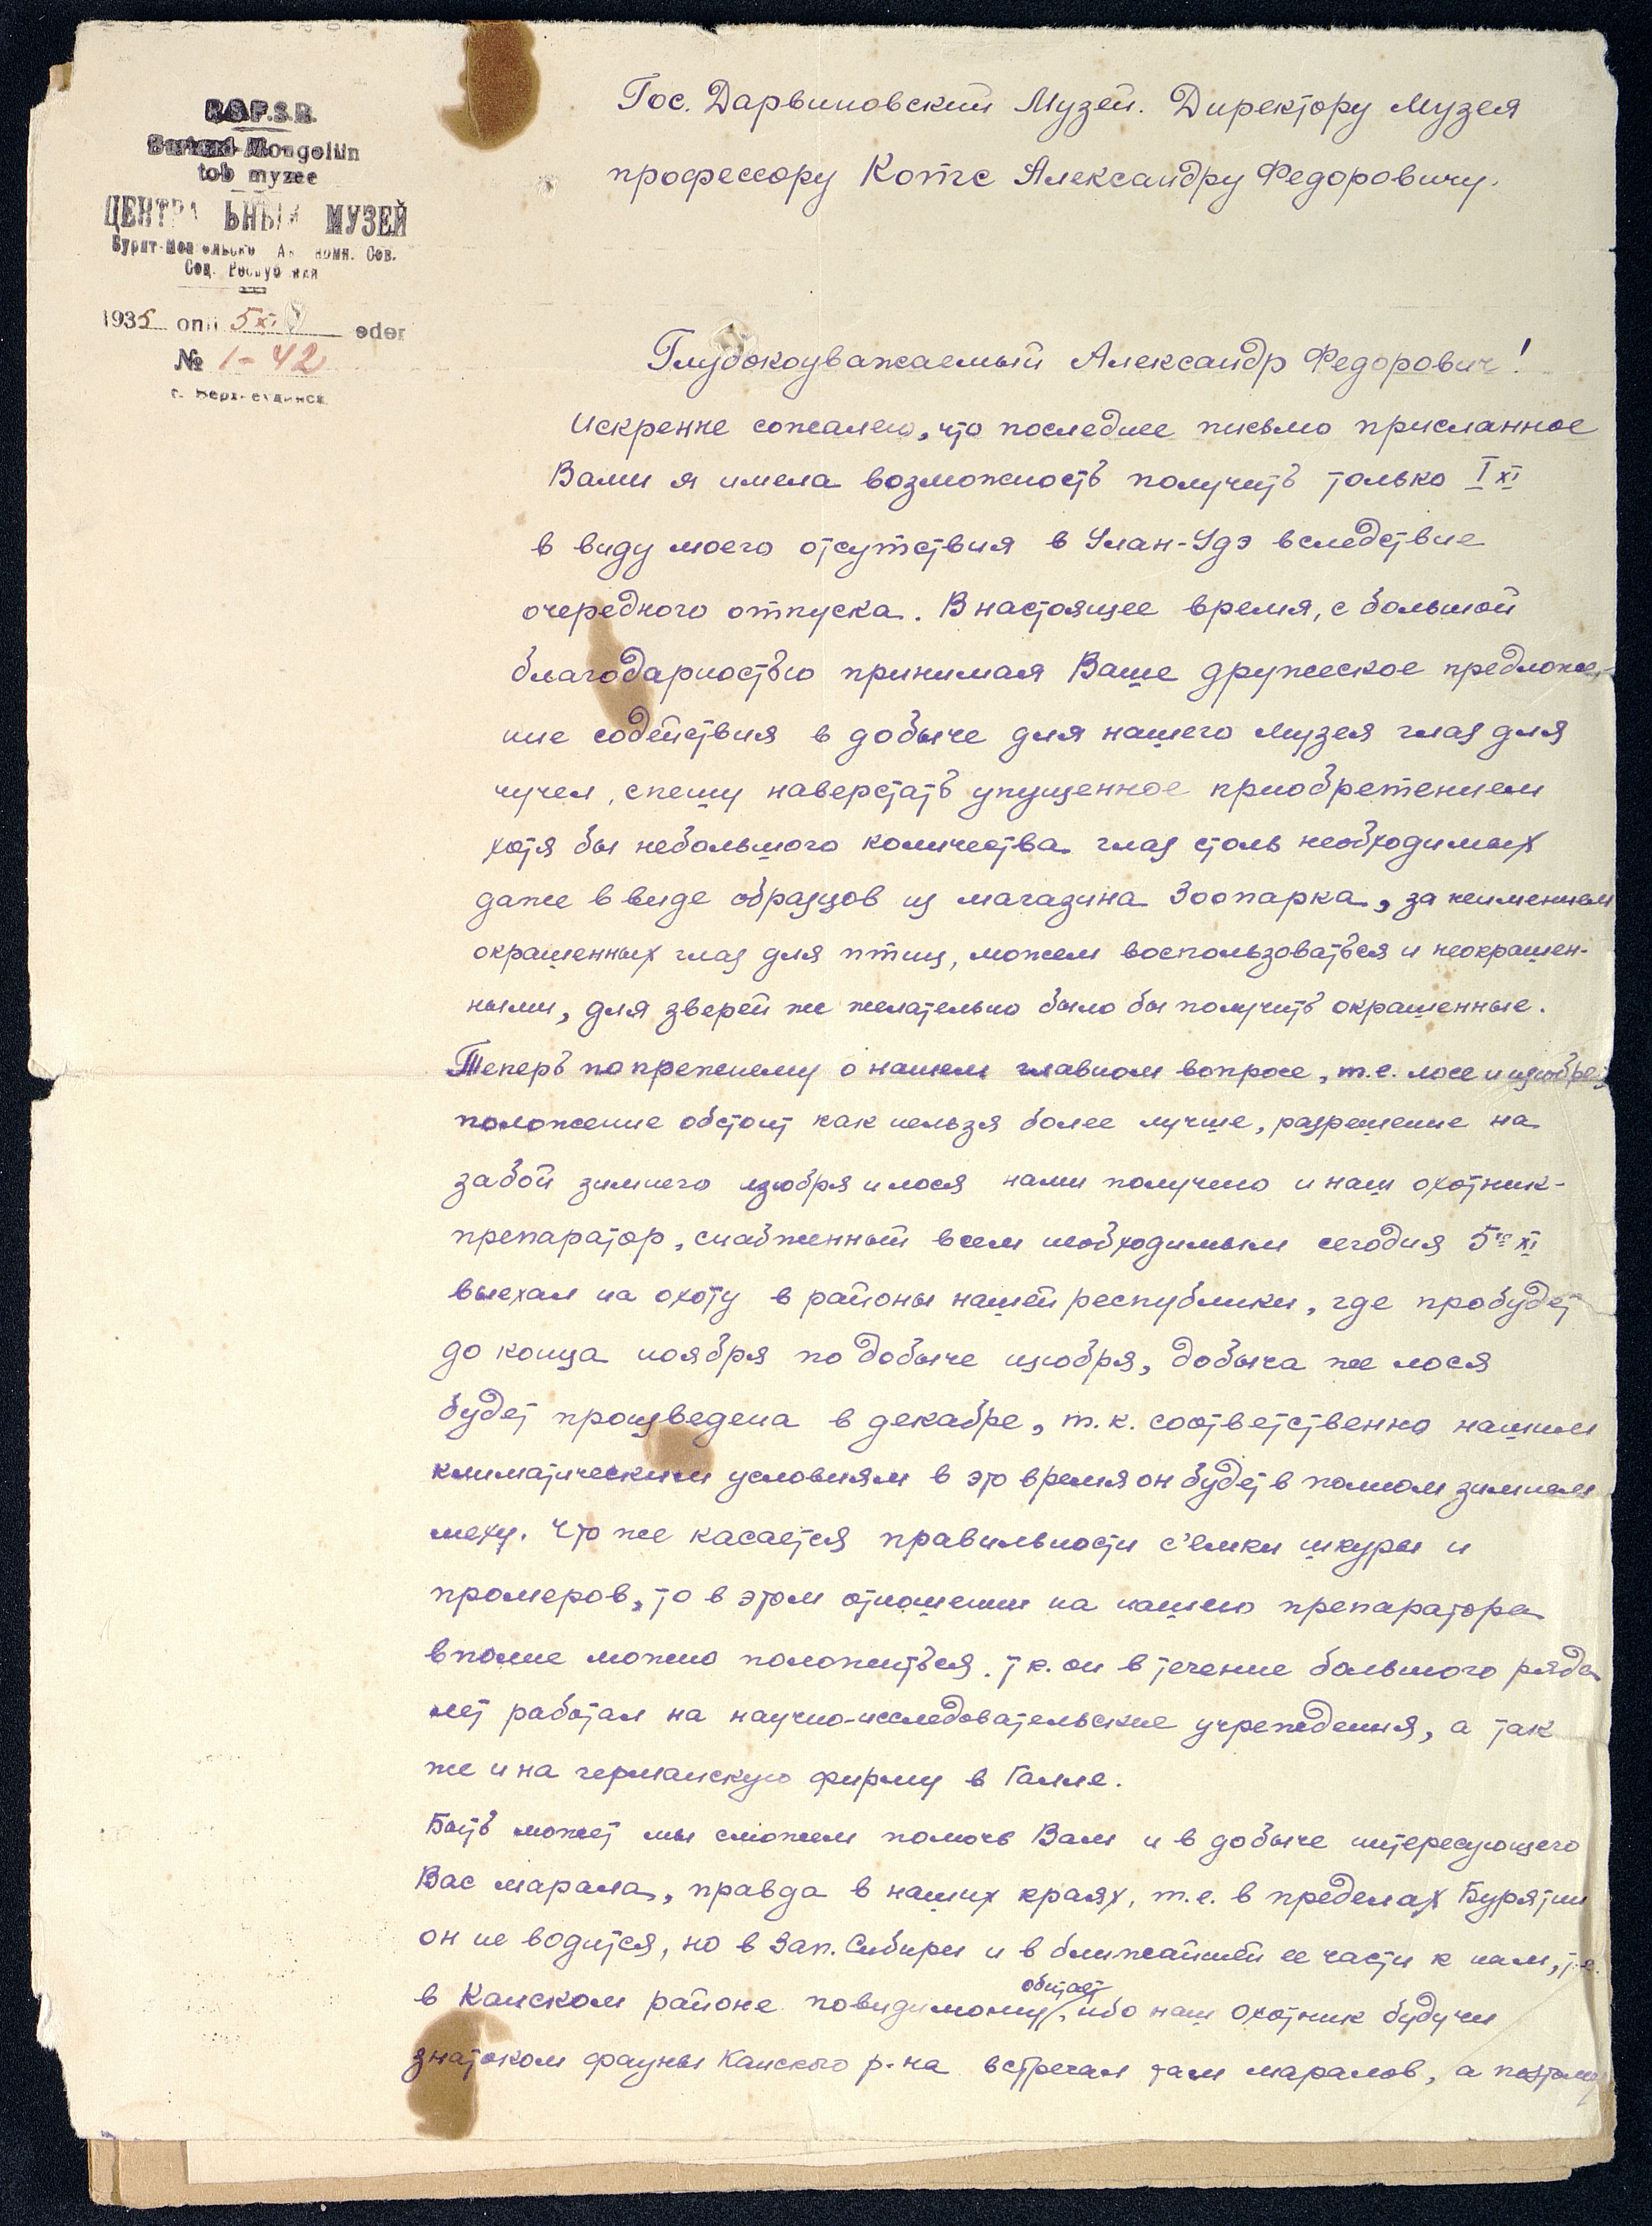 R.S.F.S.R.
Mongoliin
tob myzee
ЦЕНТРАЛЬНЫЙ МУЗЕЙ
Бурят-Монгольско Автономн. Сов.
Соц. Республики
1935 onii 5 XI eder
№ 1-42
г. Верх-еудинск
Гос. Дарвиновский Музей. Директору Музея
профессору Котс Александру Федоровичу.
Глубокоуважаемый Александр Федорович!
Искренне сожалею, что последнее письмо присланное
Вами я имела возможность получить только I XI
в виду моего отсутствия в Улан-Удэ вследствие
очередного отпуска. В настоящее время, с большой
благодарностью принимая Ваше дружеское предложе-
ние содействия в добыче для нашего музея глаз для
чучел, спешу наверстать упущенное приобретением
хотя бы небольшого количества глаз столь необходимых
даже в виде образцов из магазина Зоопарка, за неимением
окрашенных глаз для птиц, можем воспользоваться и неокрашен-
ными, для зверей же желательно было бы получить окрашенные.
Теперь по прежнему о нашем главном вопросе, т.е. лосе и изюбре,
положение обстоит как нельзя более лучше, разрешение на
забой зимнего изюбря и лося нами получено и наш охотник-
препаратор, снабженный всем необходимым сегодня 5го XI
выехал на охоту в районы нашей республики, где пробудет
до конца ноября по добыче изюбря, добыча же лося
будет произведена в декабре, т.к. соответственно нашим
климатическим условиям в это время он будет в полном зимнем
меху. Что же касается правильности с'емки шкуры и
промеров, то в этом отношении на нашего препаратора
вполне можно положиться. т к. он в течение большого ряда
лет работал на научно-исследовательские учреждения, а так
же и на германскую фирму в Галле.
Быть может мы сможем помочь Вам и в добыче интересующего
Вас марала, правда в наших краях, т.е. в пределах Бурятии
он не водится, но в Зап. Сибири и в ближайшей ее части к нам, т.е.
в Канском районе повидимому обитает, ибо наш охотник будучи
знатоком фауны Канского р-на встречал там маралов, а поэтому